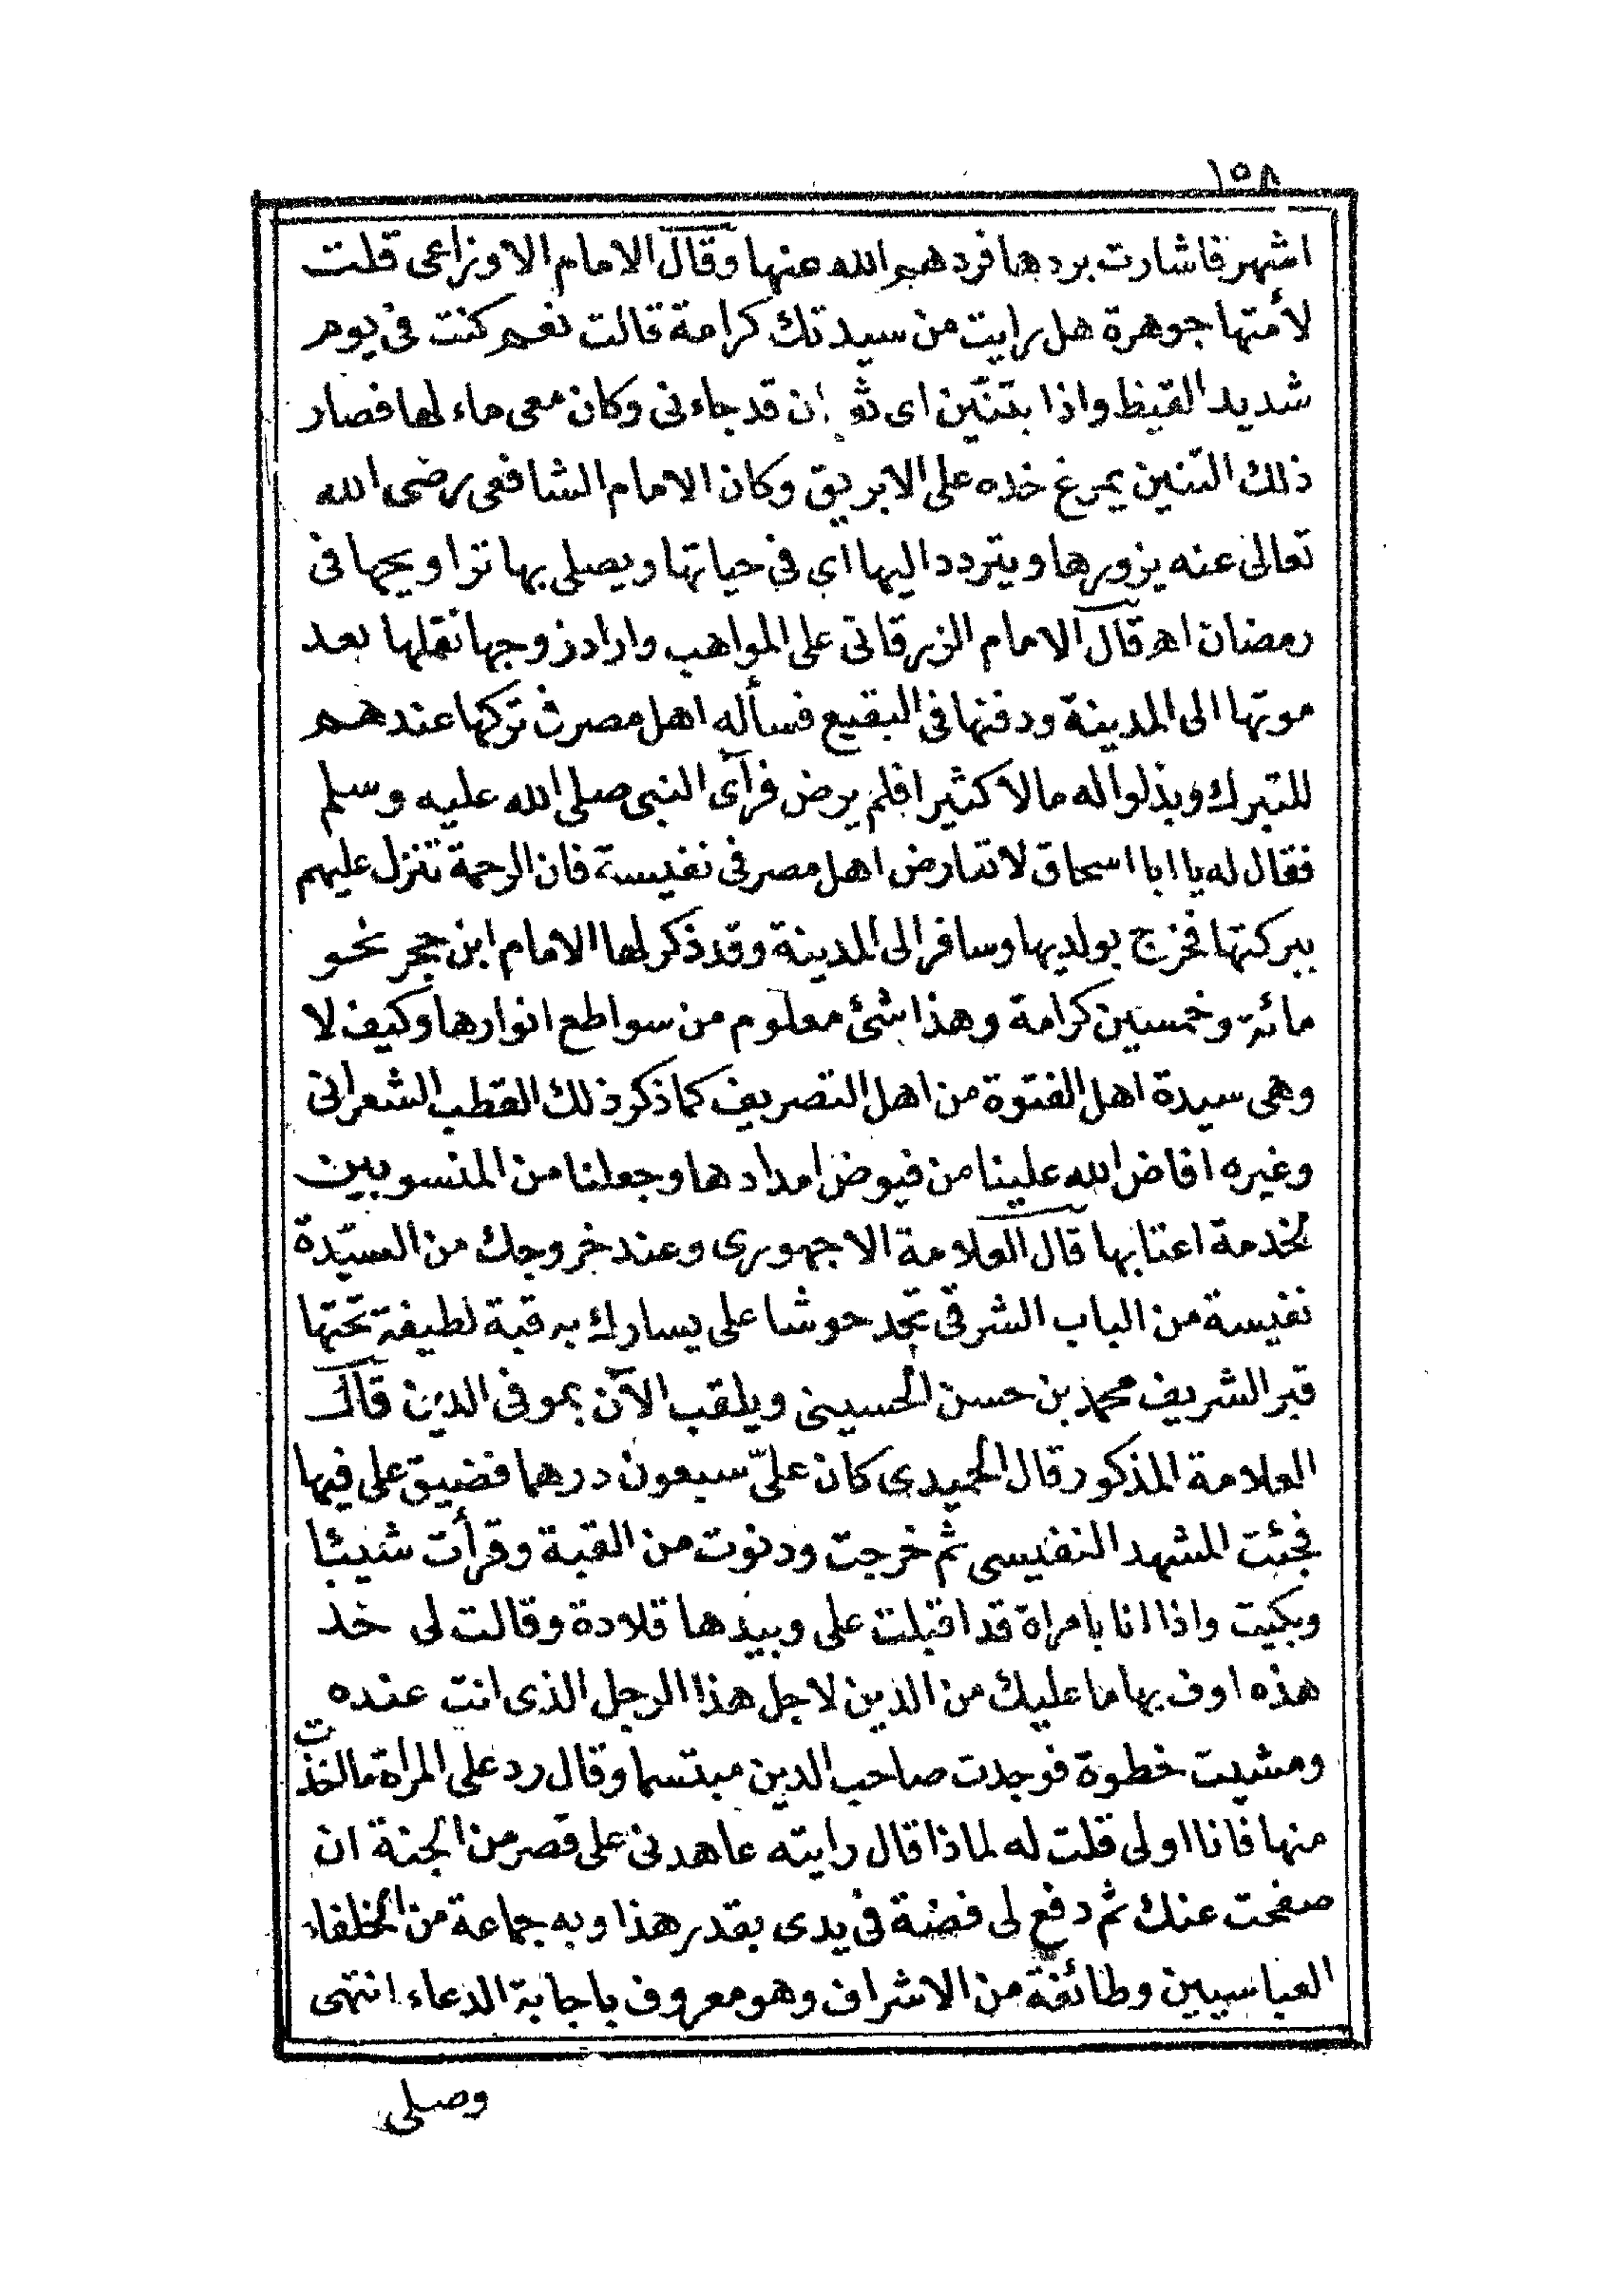 ١٥٨
اشهر فاشارت بردها فردهم الله عنها وقال الامام الاوزاعى قلت
لأمتها جوهرة هل رايت من سيدتك كرامة قالت نعم كنت فى يوم
شديد القيظ واذا بتنّين اى قد جاءنى وكان معى ماء لها فصار
ذلك التنين يمرغ خده على الابريق وكان الامام الشافعى رضى الله
تعالى عنه يزورها ويتردد اليها اى فى حياتها ويصلى بها تراويحها فى
رمضان اهـ قال الامام الزرقانى على المواهب واراد زوجها نقلها بعد
موتها الى المدينة ودفنها فى البقيع فسأله اهل مصر فى تركها عندهم
للتبرك وبذلوا له مالا كثيرا فلم يرض فرآى النبى صلى الله عليه وسلم
فقال له يا ابا اسحاق لا تعارض اهل مصر فى نفيسة فان الرحمة تنزل عليهم
ببركتها فخرج بولديها وسافر الى المدينة وقد ذكر لها الامام ابن حجر نحو
مائة وخمسين كرامة وهذا شئ معلوم من سواطع انوارها وكيف لا
وهى سيدة اهل الفتوة من اهل التصريف كما ذكر ذلك القطب الشعرانى
وغيره افاض الله علينا من فيوض امدادها وجعلنا من المنسوبين
لخدمة اعتابها قال العلامة الاجهورى وعند خروجك من السيّدة
نفيسة من الباب الشرقى تجد حوشا على يسارك به قبة لطيفة تحتها
قبر الشريف محمد بن حسن الحسينى ويلقب الآن بموفى الدين قال
العلامة المذكور قال الحميدى كان علىّ سبعون درهما فضيق على فيها
فجئت المشهد النفيسى ثم خرجت ودنوت من القبة وقرأت شيئا
وبكيت واذا انا بامراة قد اقبلت على وبيدها قلادة وقالت لى خذ
هذه اوف بها ما عليك من الدين لاجل هذا الرجل الذى انت عنده
ومشيت خطوة فوجدت صاحب الدين مبتسما وقال رد على المراة ما اخذت
منها فانا اولى قلت له لماذا قال رايته عاهدنى على قصر من الجنة ان
صفحت عنك ثم دفع لى فضة فى يدى بقدر هذا وبه جماعة من الخلفاء
العباسيين وطائفة من الاشراف وهو معروف باجابة الدعاء انتهى
وصلى